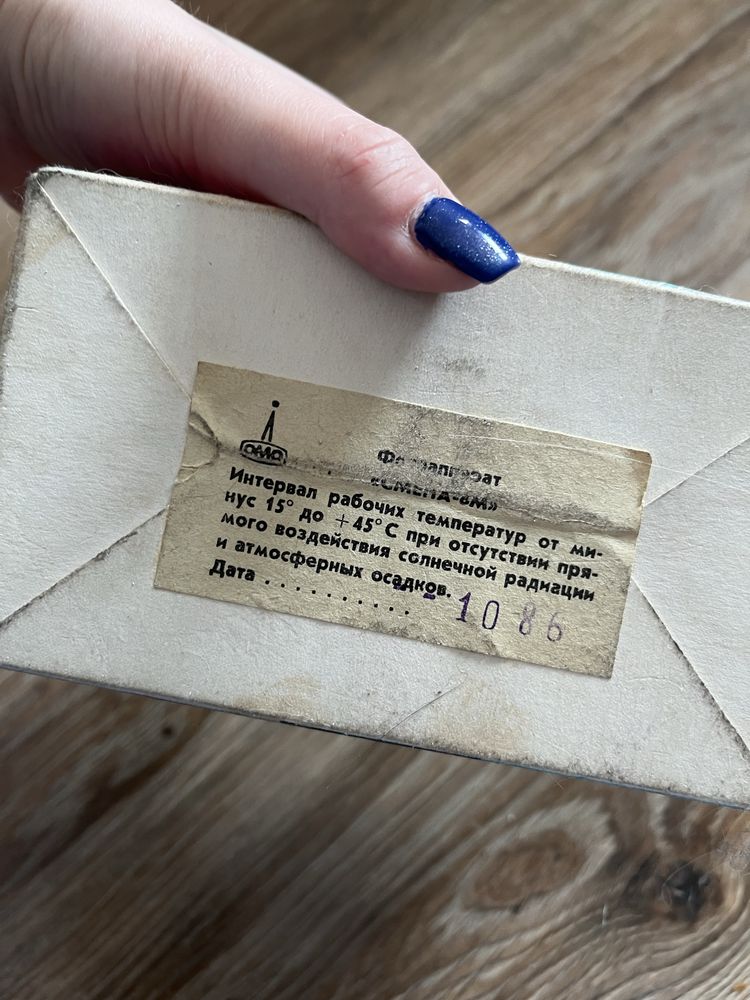 ЛОМО
Фотоаппарат
«СМЕНА-8М»
Интервал рабочих температур от ми-
нус 15° до +45°С при отсутствии пря-
мого воздействия солнечной радиации
и атмосферных осадков.
Дата . . . . . . . . . . . 10 86